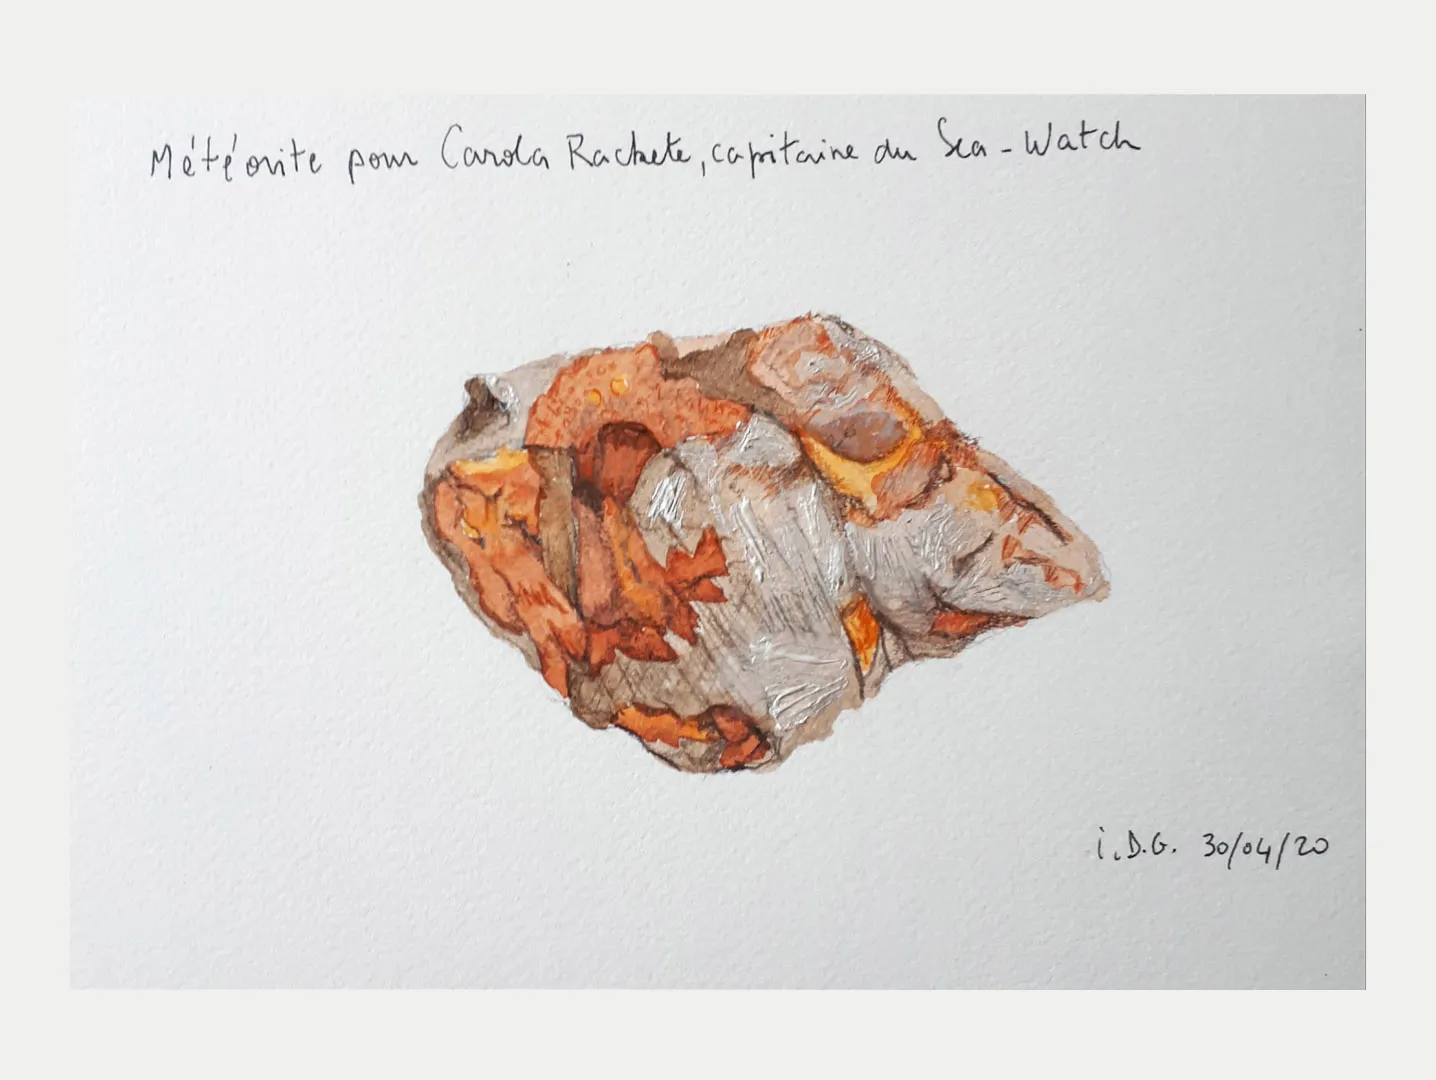 Météorite pour Carola Rackete, capitaine du Sea-Watch
i.D.G. 30/04/20